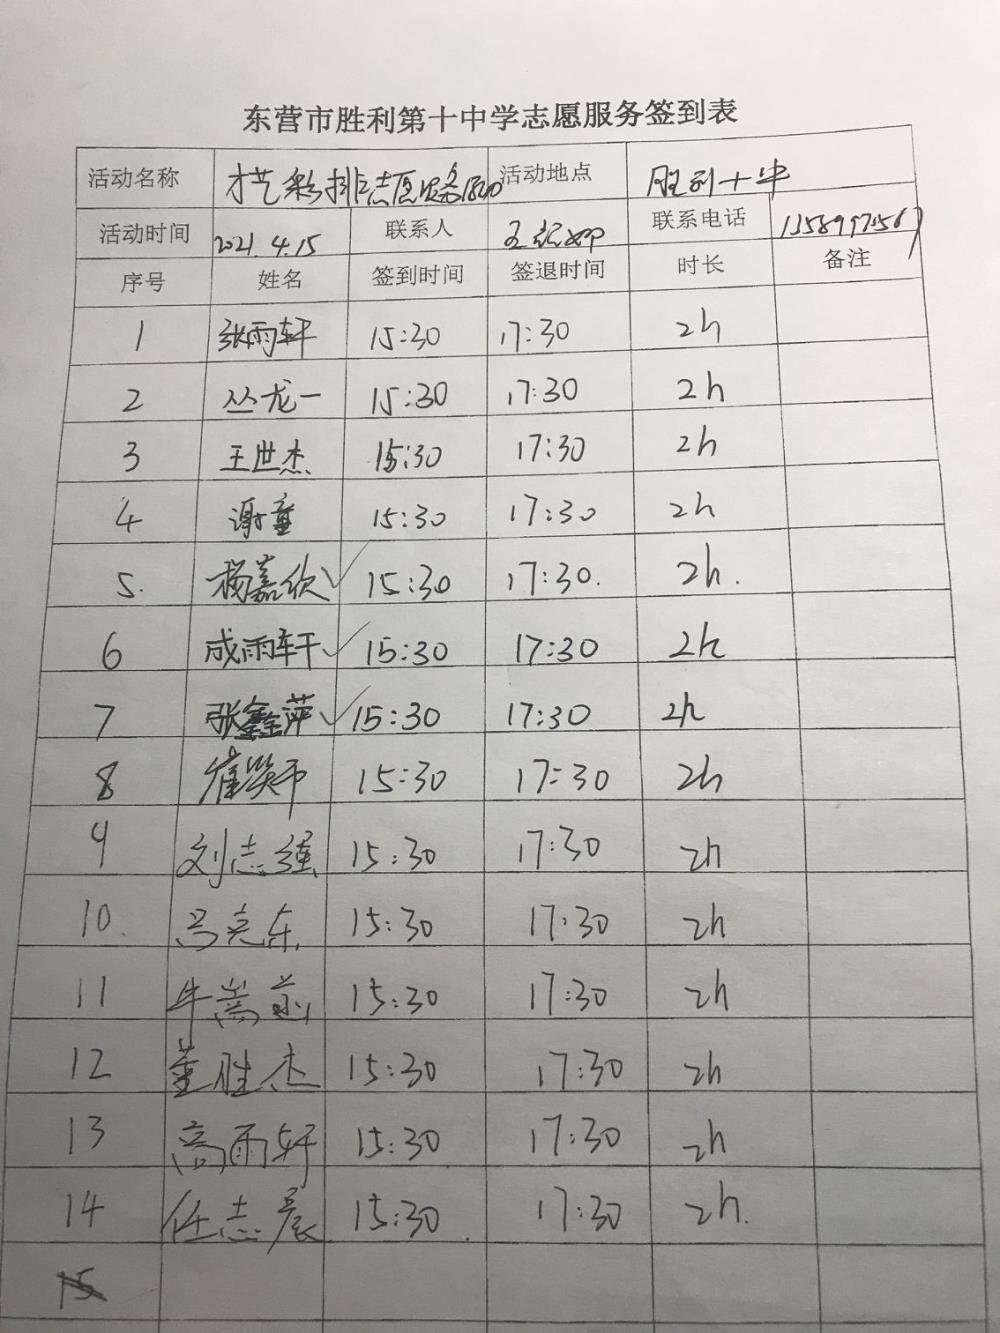 东营市胜利第十中学志愿服务签到表
活动名称 才艺彩排志愿服务活动 活动地点 胜利十中
活动时间 2021.4.15 联系人 联系电话
序号 姓名 签到时间 签退时间 时长 备注
1 张雨轩 15:30 17:30 2h
2 丛龙一 15:30 17:30 2h
3 王世杰 15:30 17:30 2h
4 谢童 15:30 17:30 2h
5. 杨嘉欣✓ 15:30 17:30. 2h.
6 成雨轩✓ 15:30 17:30 2h
7 张鑫萍✓ 15:30 17:30 2h
8 崔笑 15:30 17:30 2h
9 刘志强 15:30 17:30 2h
10. 冯克东 15:30 17:30 2h
11 牛嵩 15:30 17:30 2h
12 董胜杰 15:30 17:30 2h
13 高雨轩 15:30 17:30 2h
14 任志晨 15:30 17:30 2h.
15